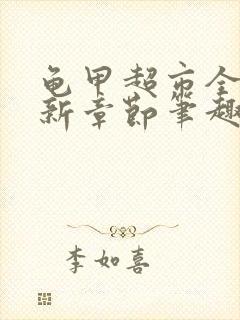 龟甲超市全
新章节笔趣
李如喜